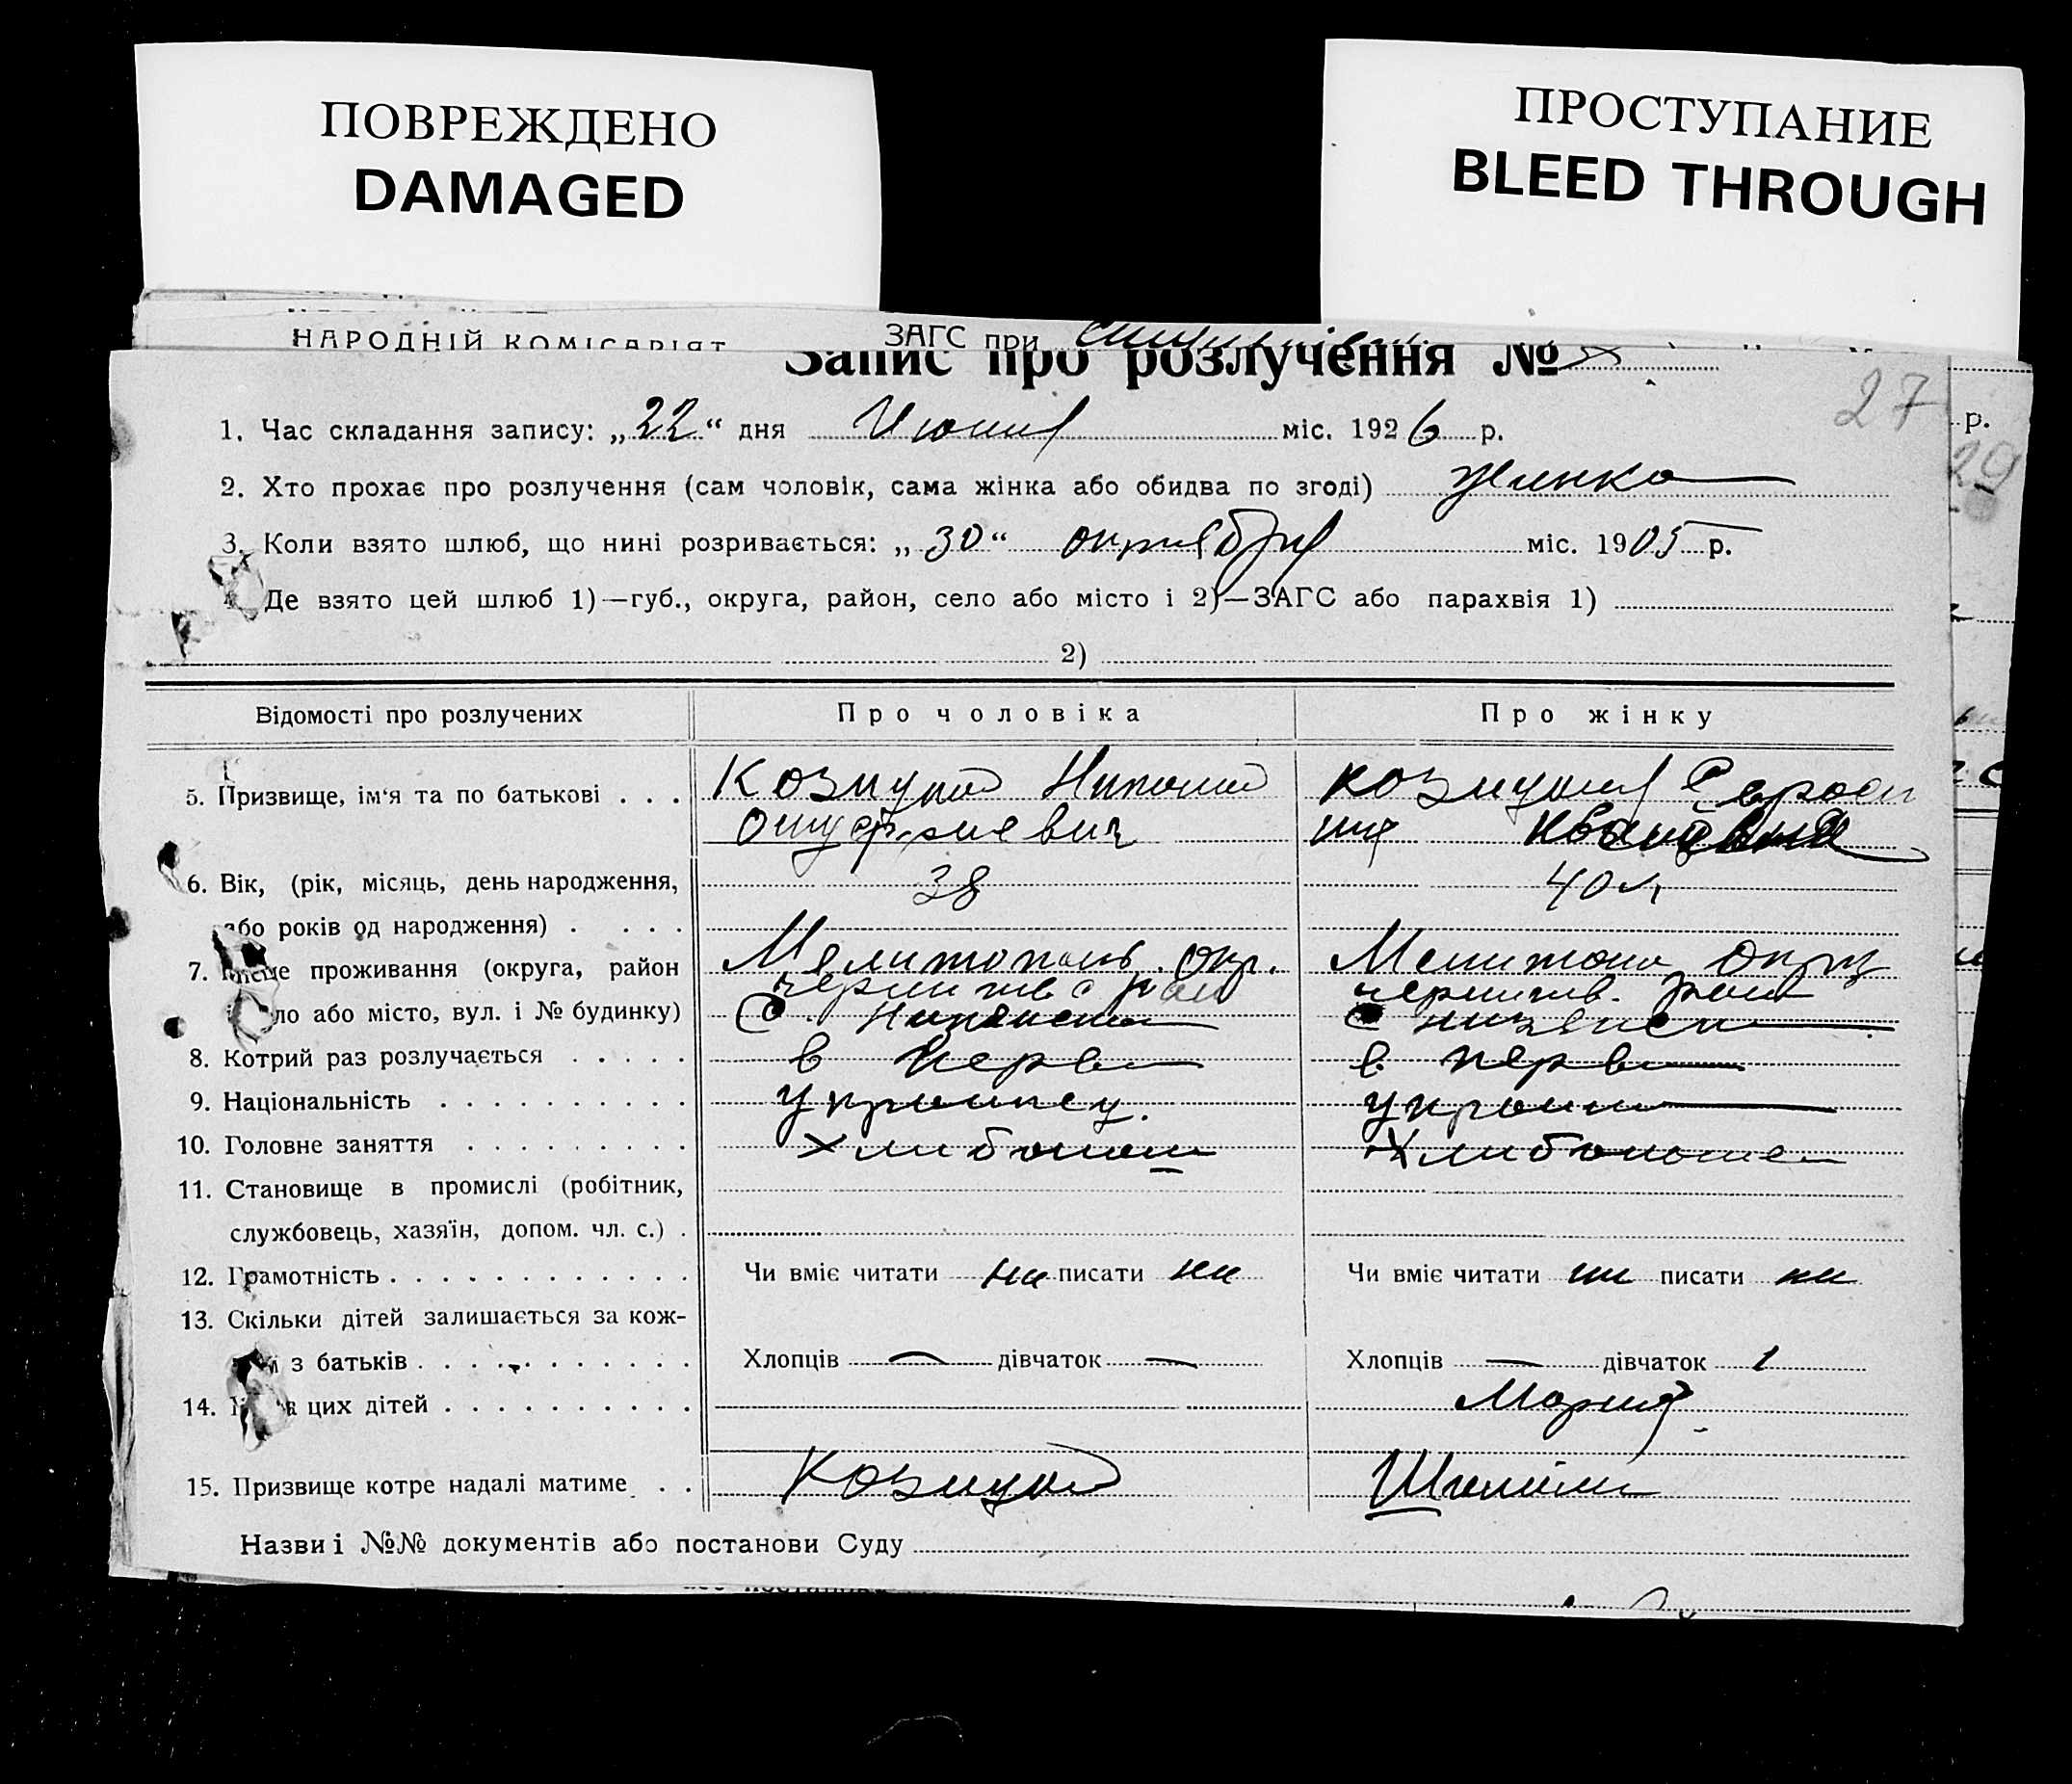 ПОВРЕЖДЕНО
DAMAGED
ПРОСТУПАНИЕ
BLEED THROUGH
НАРОДНІЙ КОМІСАРІЯТ
ЗАГС при
Запис про розлучення №
27
р.
29
1. Час складання запису: „22“ дня Июня міс. 1926 р.
2. Хто прохає про розлучення (сам чоловік, сама жінка або обидва по згоді) жинка
3. Коли взято шлюб, що нині розривається: „30“ октября міс. 1905 р.
Де взято цей шлюб 1)—губ., округа, район, село або місто і 2)—ЗАГС або парахвія 1)
2)
Відомості про розлучених
Про чоловіка
Про жінку
5. Призвище, ім'я та по батькові . . .
Козицкий
Козицкая
6. Вік, (рік, місяць, день народження,
або років од народження) . . . .
38
40 л
7. Місце проживання (округа, район
ло або місто, вул. і № будинку)
Мелитопань. окр.
С.
Мелитопа окр
черниив. рай
С
8. Котрий раз розлучається . . . . .
в Перв
в перв
9. Національність . . . . . . . . . .
украинец.
украин
10. Головне заняття . . . . . . . . .
Хлибопаш
Хлибопаше
11. Становище в промислі (робітник,
службовець, хазяїн, допом. чл. с.) .
12. Грамотність . . . . . . . . . . . .
Чи вміє читати ни писати ни
Чи вміє читати ни писати ни
13. Скільки дітей залишається за кож-
з батьків . . . . . . . . . . .
Хлопців — дівчаток —
Хлопців — дівчаток 1
14. цих дітей . . . . . . . . . .
Мария
15. Призвище котре надалі матиме . .
Козицкий
Назви і №№ документів або постанови Суду